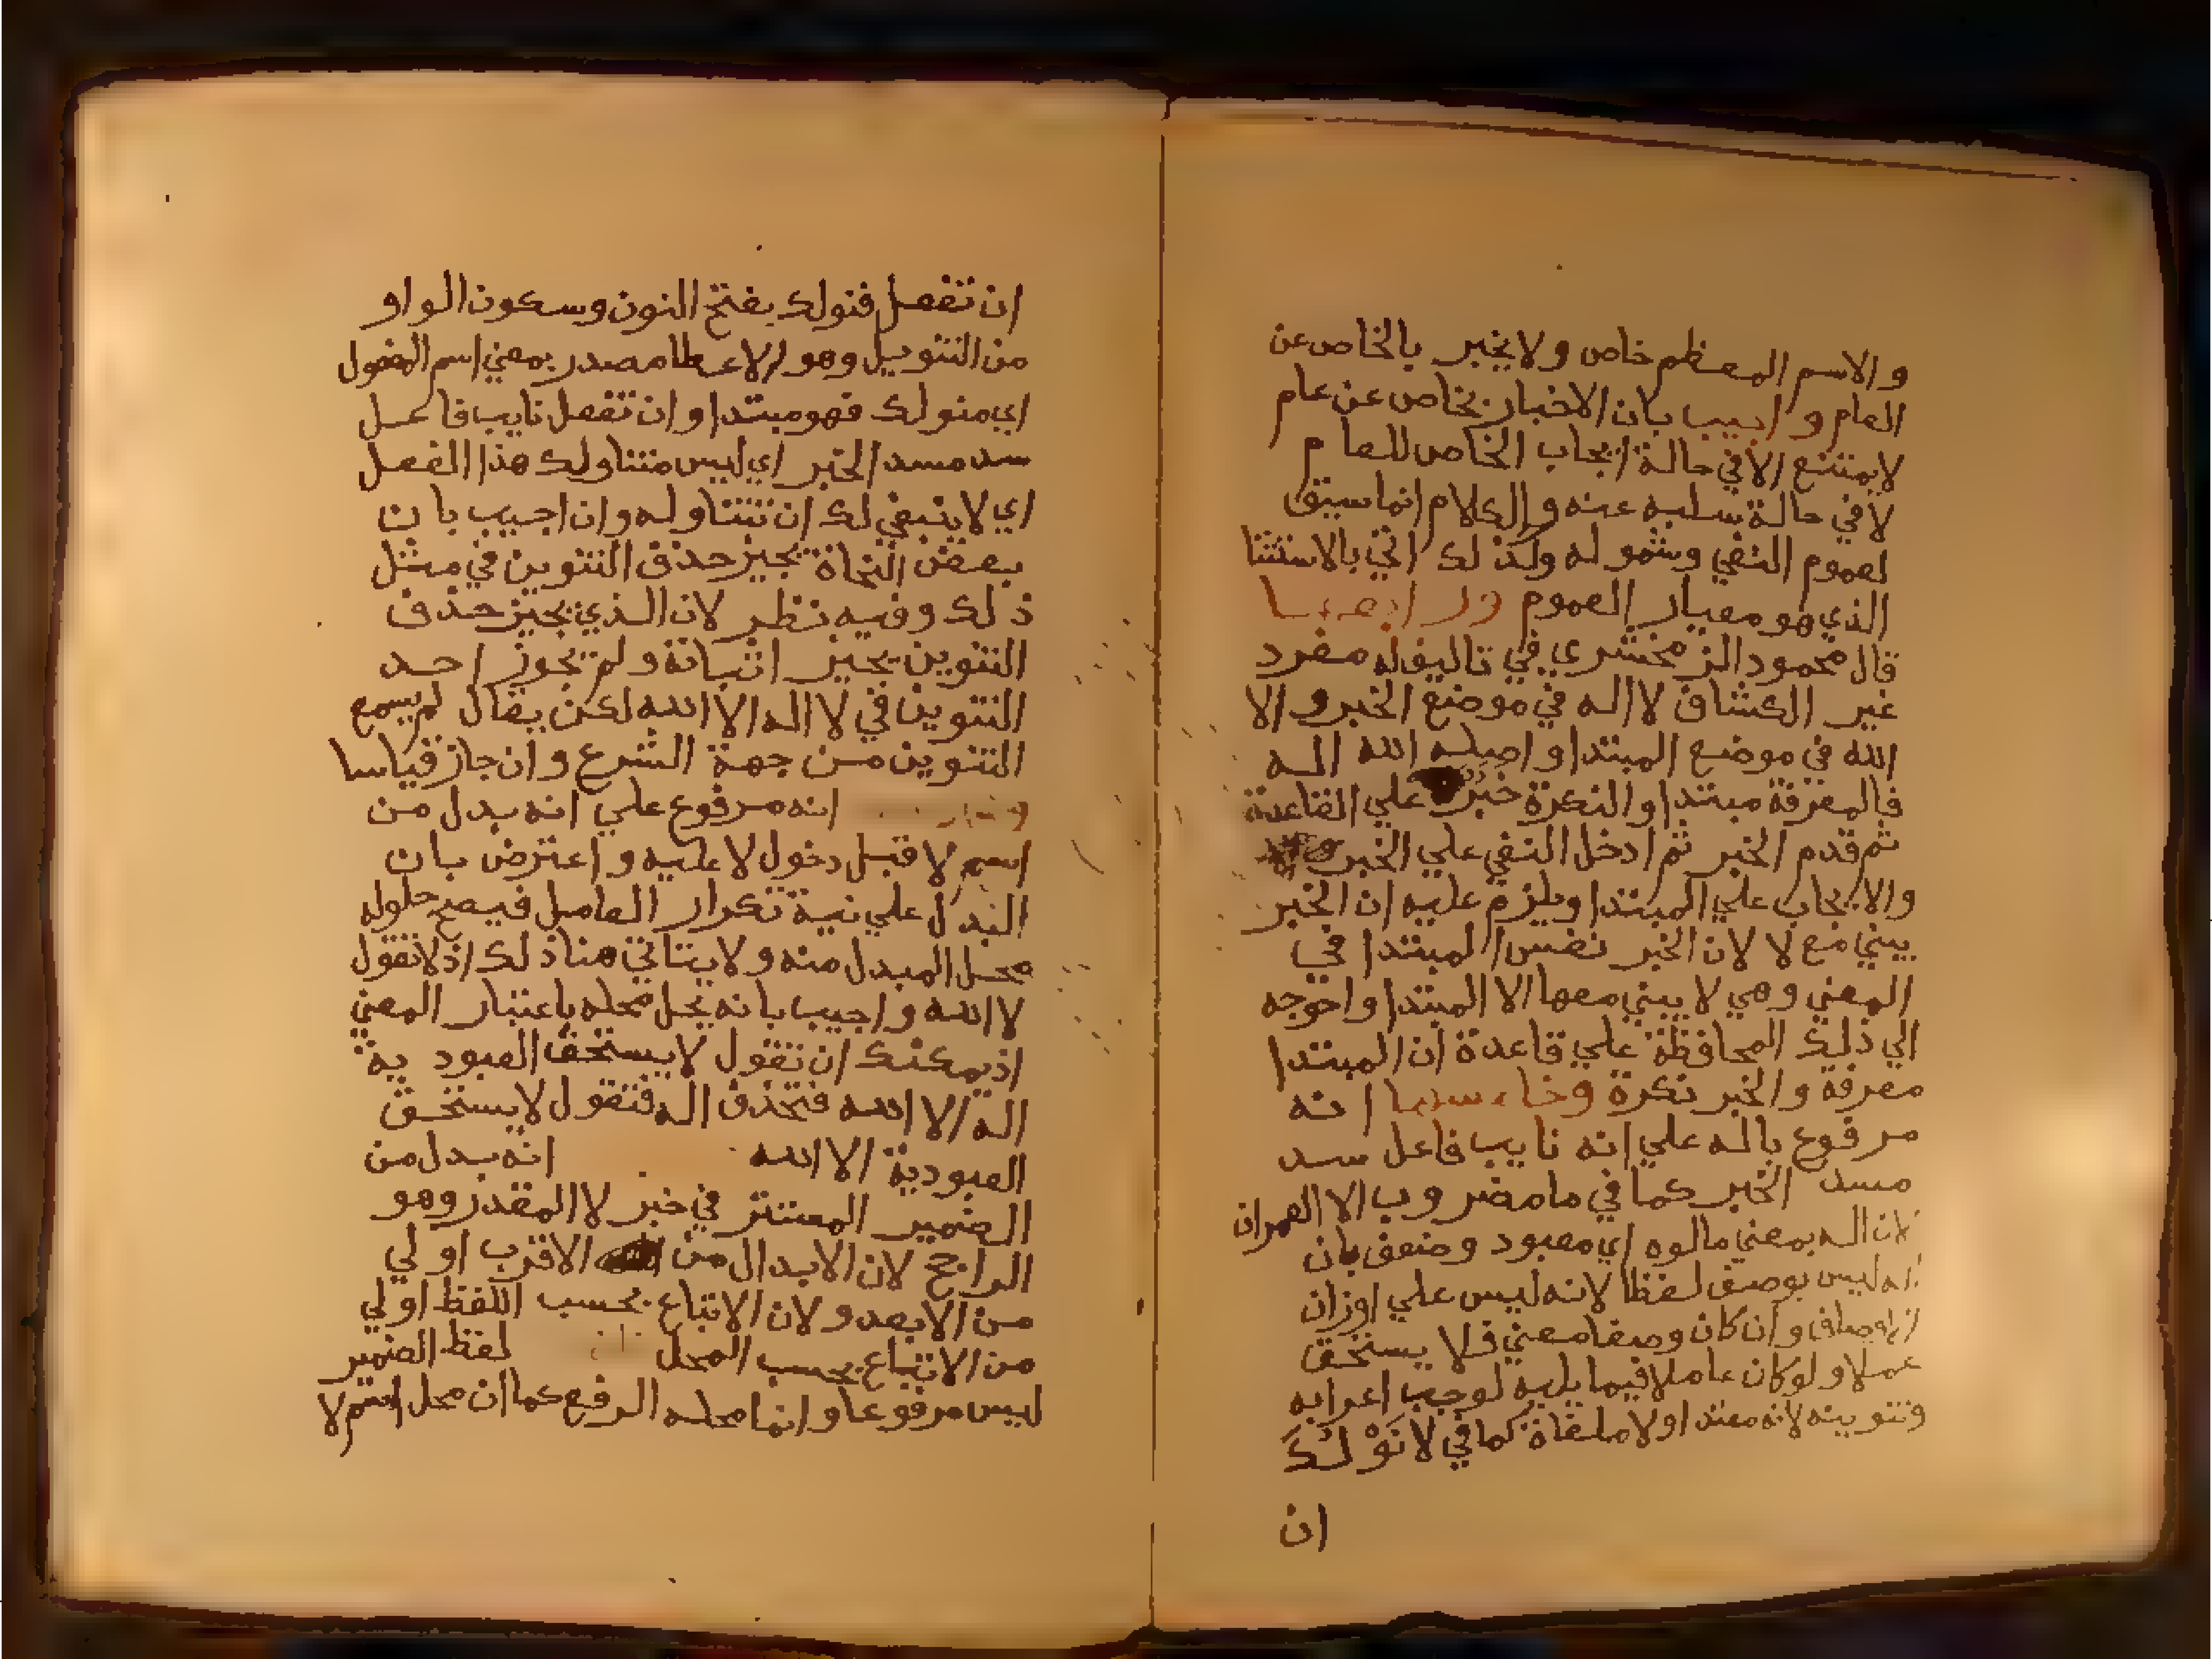 و الاسم المعظم خاص ولا يخبر بالخاص عن
العام و اجيب بان الاخبار بخاص عن عام
لا يمتنع الا في حالة ايجاب الخاص للعام
لا في حالة سلبه عنه و الكلام انما سيق
لعموم النفي وشموله وكذلك اتي بالاستثنا
الذي هو معيار العموم ورابعها
قال محمود الزمخشري في تاليف له مفرد
غير الكشاف لا اله في موضع الخبر و الا
الله في موضع المبتدا و اصله الله اله
فالمعرفة مبتدا و النكرة خبر علي القاعدة
ثم قدم الخبر ثم ادخل النفي علي الخبر
والايجاب علي المبتدا ويلزم عليه ان الخبر
يبني مع لا لان الخبر نفس المبتدا في
المعني وهي لا يبني معها الا المبتدا و احوجه
الي ذلك المحافظة علي قاعدة ان المبتدا
معرفة و الخبر نكرة وخامسها انه
مرفوع باله علي انه نايب فاعل سد
مسد الخبر كما في ما مضروب الا العمران
لان اله بمعني مالوه اي معبود وضعف بان
اله ليس بوصف لفظا لانه ليس علي اوزان
الاوصاف و ان كان وصفا معني فلا يستحق
عملا و لو كان عاملا فيما يليه لوجب اعرابه
وتنوينه لانه مبتدا و لا ملغاة كما في لا نَوْلُكَ
ان
ان تفعل فنولك بفتح النون وسكون الواو
من التنويل وهو الاعطا مصدر بمعني اسم المفعول
اي منولك فهو مبتدا و ان تفعل نايب فاعل
سد مسد الخبر اي ليس متناولك هذا الفعل
اي لا ينبغي لك ان تتناوله و ان اجيب بان
بعض النحاة يجيز حذف التنوين في مثل
ذلك و فيه نظر لان الذي يجيز حذف
التنوين يجيز اثباته ولم يجوز احد
التنوين في لا اله الا الله لكن يقال لم يسمع
التنوين من جهة الشرع و ان جاز قياسا
انه مرفوع علي انه بدل من
اسم لا قبل دخول لا عليه و اعترض بان
البدل علي نية تكرار العامل فيصح حلوله
محل المبدل منه و لا يتاتي هنا ذلك اذ لا تقول
لا الله و اجيب بانه يحل محله باعتبار المعني
اذ يمكنك ان تقول لا يستحق العبودية
اله الا الله فتحذف اله فتقول لا يستحق
العبودية الا الله انه بدل من
الضمير المستتر في خبر لا المقدر وهو
الراجح لان الابدال من الاقرب اولي
من الابعد و لان الاتباع بحسب اللفظ اولي
من الاتباع بحسب المحل لفظ الضمير
ليس مرفوعا و انما محله الرفع كما ان محل اسم لا